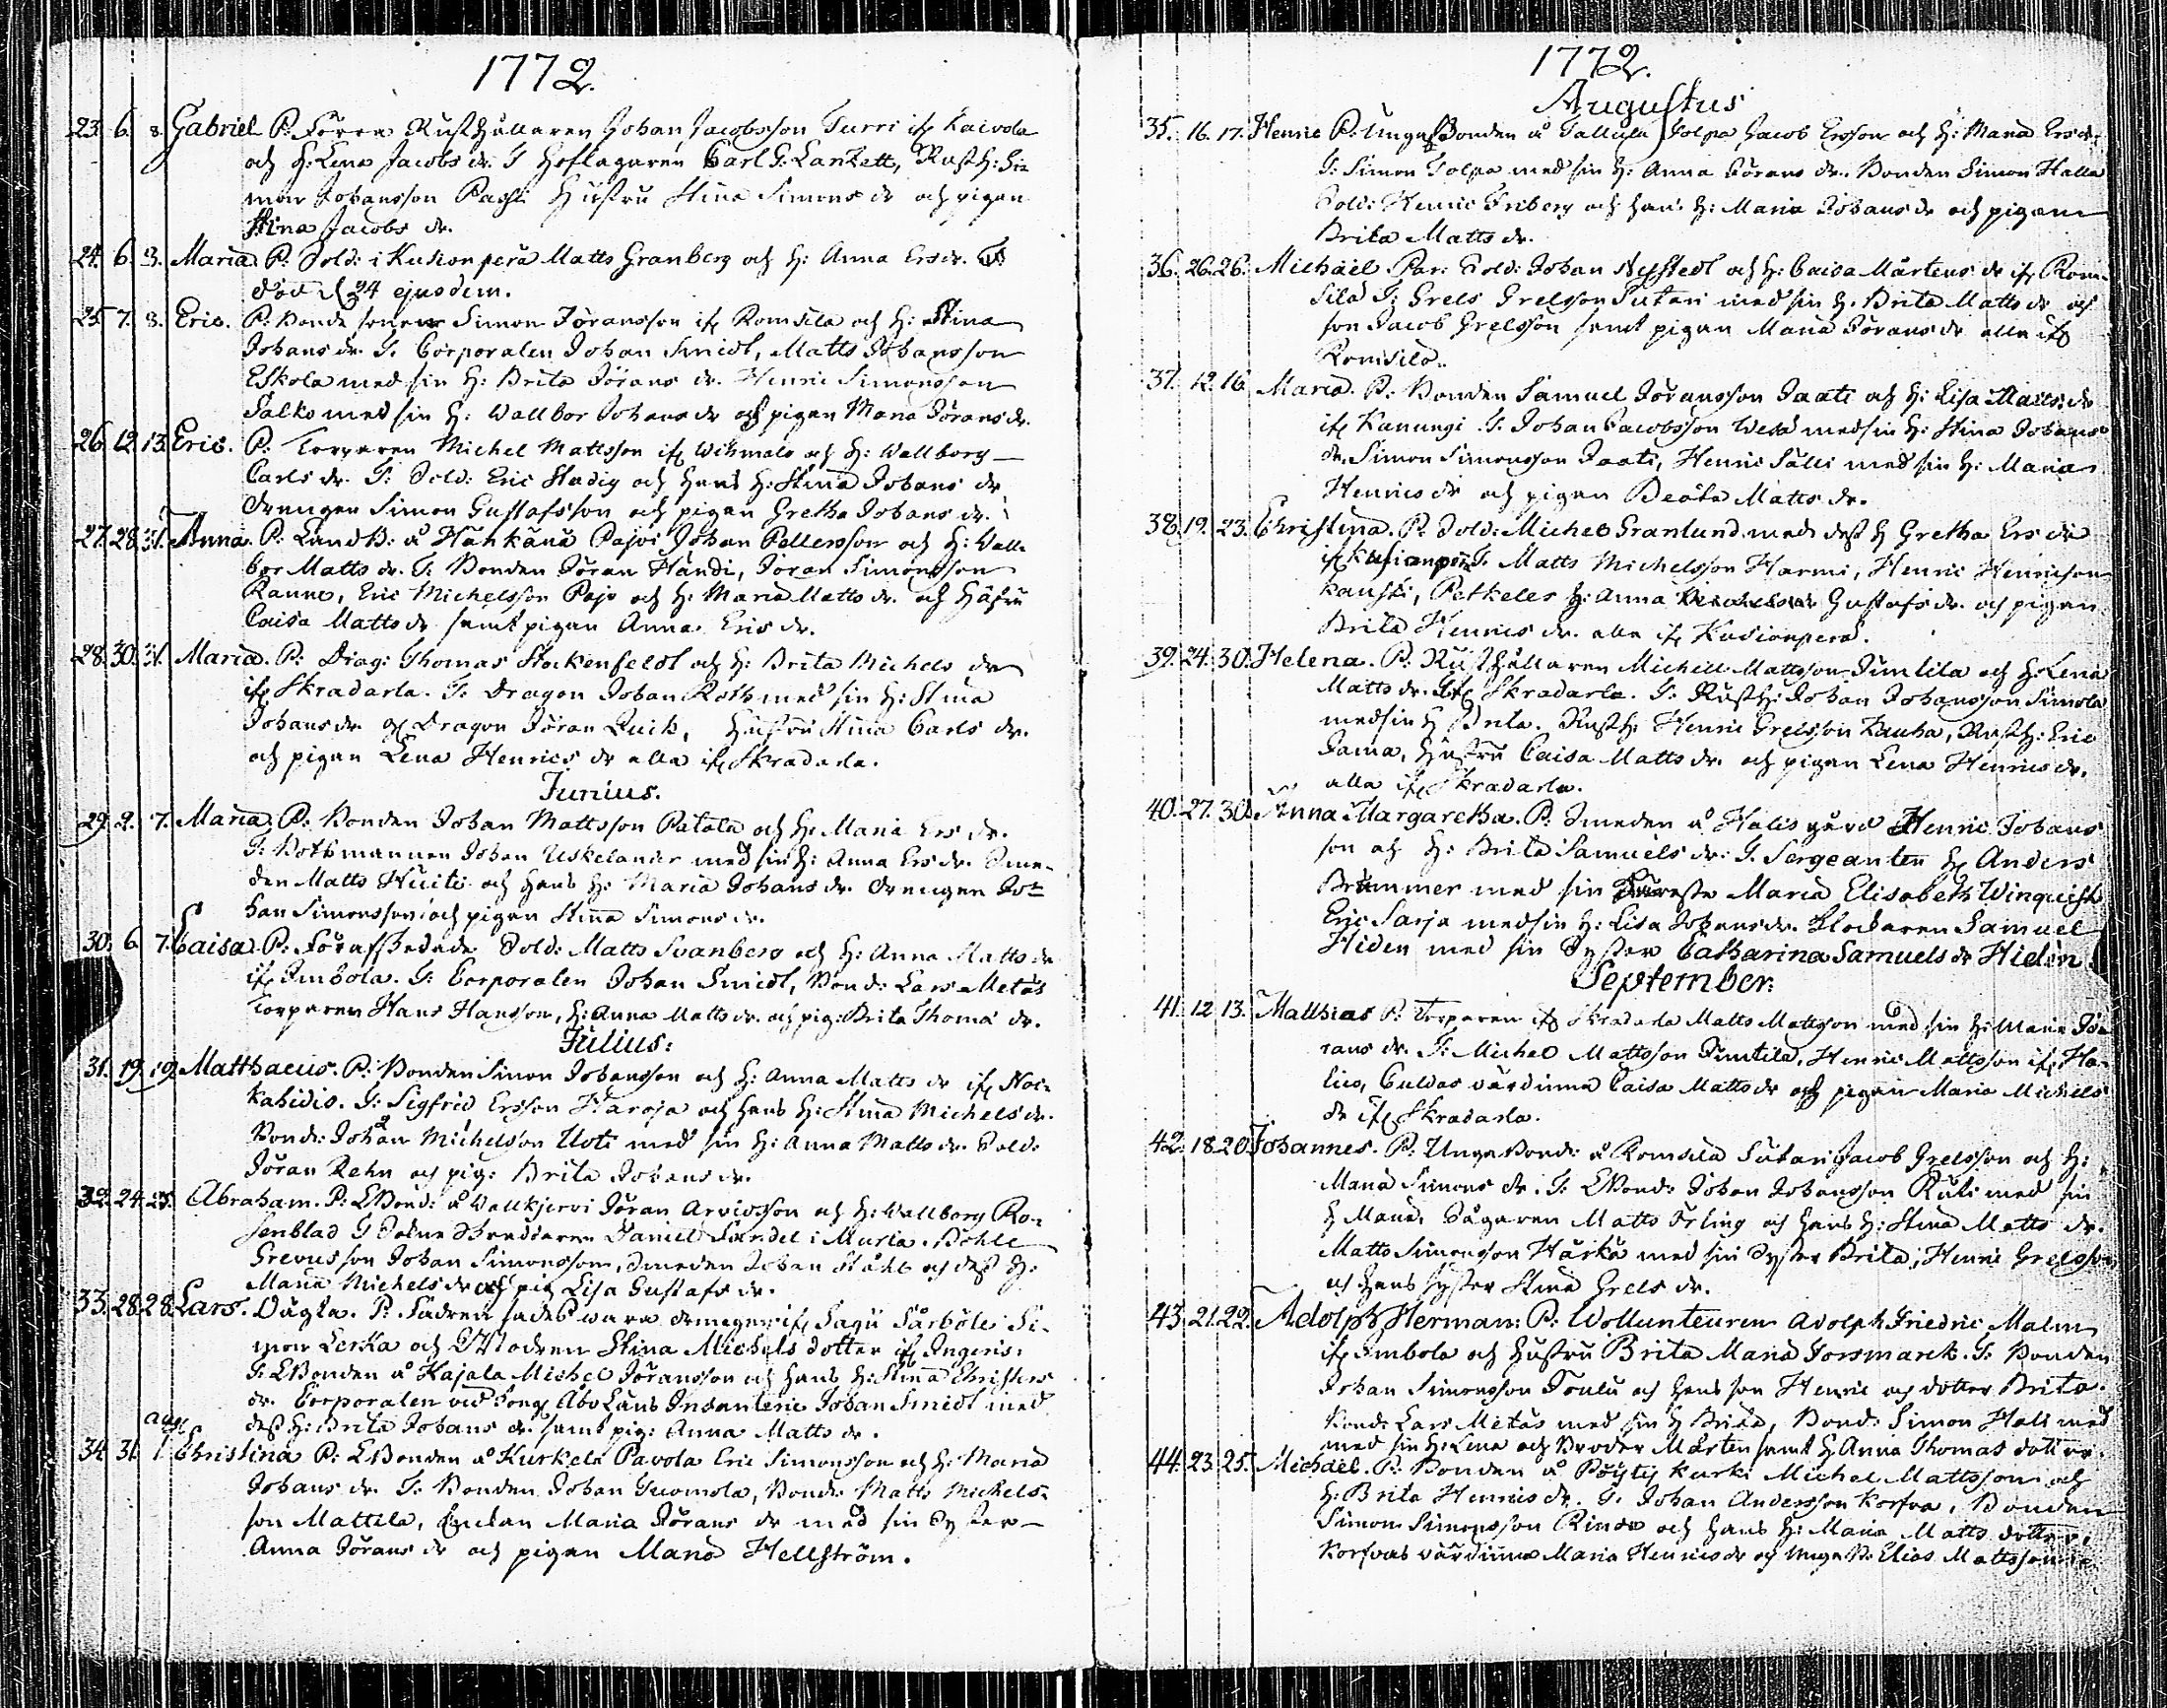 1772.
23. 6. 8. Gabriel P. Förra Rusthållaren Johan Jacobsson Turri ifr Kaivola
och H: Lena Jacobs dr. T Hofslagaren Carl G. Lankett, Rusth: Si-
mon Johansson Hustru Stina Simons dr och pigan
Stina Jacobs dr.
24. 6. 8. Maria. P. Sold: i Kusionperä Matts Granberg och H: Anna Ers dr.
död d 24 ejusdem.
25. 7. 8. Eric. P: Bonde sonen Simon Jöransson ifr Romsila och H: Stina
Johans dr. T. Corporalen Johan Smidt, Matts Johansson
Eskola med sin H: Brita Jörans dr. Henric Simonsson
Salko med sin H: Wallbor Johans dr och pigan Maria Jörans dr.
26. 12. 13. Eric. P. Torparen Michel Mattsson ifr Wihmalo och H: Wallborg
Carls dr. T: Sold: Eric Stadig och hans H: Stina Johans dr
Drengen Simon Gustafsson och pigan Gretha Johans dr.
27. 28. 31. Anna. P: Landb: å Hankanå Pajvi Johan Pettersson och H: Wall-
bor Matts dr. T. Bonden Jöran Handi, Jöran Simonsson
Ranno, Eric Michelsson Pajo och H: Maria Matts dr. och Hustru
Caisa Matts dr samt pigan Anna Eris dr.
28. 30. 31. Maria. P: Drag: Thomas Stockenfeldt och H: Brita Michels dr
ifr Skradarla. T. Dragon Johan Roth med sin H: Stina
Johans dr och Dragon Jöran Quick, Hustru Stina Carls dr.
och pigan Lena Henrics dr alla ifr Skradarla.
Junius.
29. 2. 7. Maria. P. Bonden Johan Mattsson Patala och H: Maria Ers dr.
T: Båthsmannen Johan Uskelander med sin H: Anna Ers dr. Sme-
den Matts Huiti och hans H: Maria Johans dr. Drengen Jo-
han Simonsson och pigan Stina Simons dr.
30. 6. 7. Caisa. P. Förafskedade Sold: Matts Svanberg och H: Anna Matts dr
ifr Imbola. T. Corporalen Johan Smidt, Bond: Lars Metäs
Torparen Hans Hansson, H: Anna Matts dr. och pig: Brita Thomæ dr.
Julius:
31. 19. 19. Matthaeus. P: Bonden Simon Johansson och H: Anna Matts dr ifr Noc-
kahidis. T: Sigfrid Ersson Haroja och hans H: Stina Michels dr.
Bond: Johan Michelsson Uoti med sin H: Anna Matts dr. Sold:
Jöran Rehn och pig: Brita Johans dr.
32. 24. 25. Abraham. P: LBond: å Wallkjervi Jöran Arvidsson och H: Wallborg Ro-
senblad T Daniel Sundel i Muria. Böhle
Grevusson Johan Simonsson, Smeden Johan Ståhl och dess H:
Maria Michels dr och pig Lisa Gustafs dr.
33. 28. 28. Lars. Oägta. P. Fadren sades wara drengen ifr Sagu Sårböle Si-
mon Lerka och Modren Stina Michels dotter ifr Ingeris.
T: LBonden å Kajala Michel Jöransson och hans H: Stina Christers
dr. Corporalen vid Kongl Åbo Läns Infanterie Johan Smidt med
dess H: Brita Johans dr. samt pig: Anna Matts dr.
aug:
34. 31. 1. Christina P: LBonden å Kurkela Pavola Eric Simonsson och H: Maria
Johans dr. T. Bonden Johan Suomola, Bond: Matts Michels-
son Mattila, Enkan Maria Jörans dr med sin Syster
Anna Jörans dr och pigan Maria Hellström.
1772.
Augustus
35. 16. 17. Henric P. Unga Bonden å Tallula Tolpa Jacob Ersson och H: Maria Ers dr.
T: Simon Tolpa med sin H: Anna Jörans dr. Bonden Simon Halla
Sold: Henric Friberg och hans H: Maria Johans dr och pigan
Brita Matts dr.
36. 26. 26. Michaël. Par: Sold: Johan Nystedt och H: Caisa Mårtens dr ifr Rom-
sila T: Grels Grelsson Sutari med sin H. Brita Matts dr och
son Jacob Grelsson samt pigan Maria Jörans dr alla ifr
Romsila.
37. 12. 16. Maria. P: Bonden Samuel Jöransson Jaati och H: Lisa Matts dr
ifr Kanungi. T. Johan Jacobsson med sin H: Stina Johans
dr. Simon Simonsson Jaati, Henric Sälli med sin H: Maria
Henrics dr och pigan Beata Matts dr.
38. 19. 23. Christina. P. Sold: Michel Granlund med dess H Gretha Ers dr
ifr Kusionperä T. Matts Michelsson Harmi, Henric Henricsson
Kauski, Petkeles H: Anna Gustafs dr. och pigan
Brita Henrics dr. alla ifr Kusionperä.
39. 24. 30. Helena. P. Rusthållaren Michell Mattsson Juntila och H: Lena
Matts dr. ifr Skradarla. T. Rusth: Johan Johansson Simola
med sin H Brita. Rusth: Henric Grelsson Kauha, Rusth: Eric
Jama, Hustru Caisa Matts dr. och pigan Lena Henrics dr.
alla ifr Skradarla.
40. 27. 30. Anna Margaretha. P. Smeden å Halis gård Henric Johans
son och H: Brita Samuels dr: T. Sergeanten H Anders
Brummer med sin Maria Elisabeth Winquist
Eric Sarja med sin H: Lisa Johans dr. Klockaren Samuel
Hiden med sin Syster Catharina Samuels dr Hidén
September:
41. 12. 13. Matthias P. Torparen ifr Skradarla Matts Mattsson med sin H: Maria Jö-
rans dr. T: Michel Mattsson Juntila, Henric Mattsson ifr Ha-
lico, Culdas värdinna Caisa Matts dr och pigan Maria Michels
dr ifr Skradarla.
42. 18. 20. Johannes. P. Unga Bond: å Romsila Sutari Jacob Grelsson och H:
Maria Simons dr. T: LBond: Johan Johansson Räti med sin
H Maria, Sågaren Matts Örling och hans H: Stina Matts dr.
Matts Simonsson Härkä med sin Syster Brita, Henric Grelsson
och hans syster Stina Grels dr.
43. 21. 22. Adolph Herman: P: Wollunteuren Adolph Friedric Malm
ifr Imbola och hustru Brita Maria Forsmarck. T: Bonden
Johan Simonsson Toulu och hans son Henric och dotter Brita.
Bond: Lars Metäs med sin H Brita, Bond: Simon Hali med
med sin H: Lena och Broder Mårten samt H Anna Thomas dotter.
44. 23. 25. Michaël. P: Bonden å Pöytis Kurki Michel Mattsson och
H: Brita Henrics dr. T. Johan Andersson Korfva, Bonden
Simon Simonsson Rinde och hans H: Maria Matts dotter,
Korfvas värdinna Maria Henrics dr och unga B. Elias Mattsson